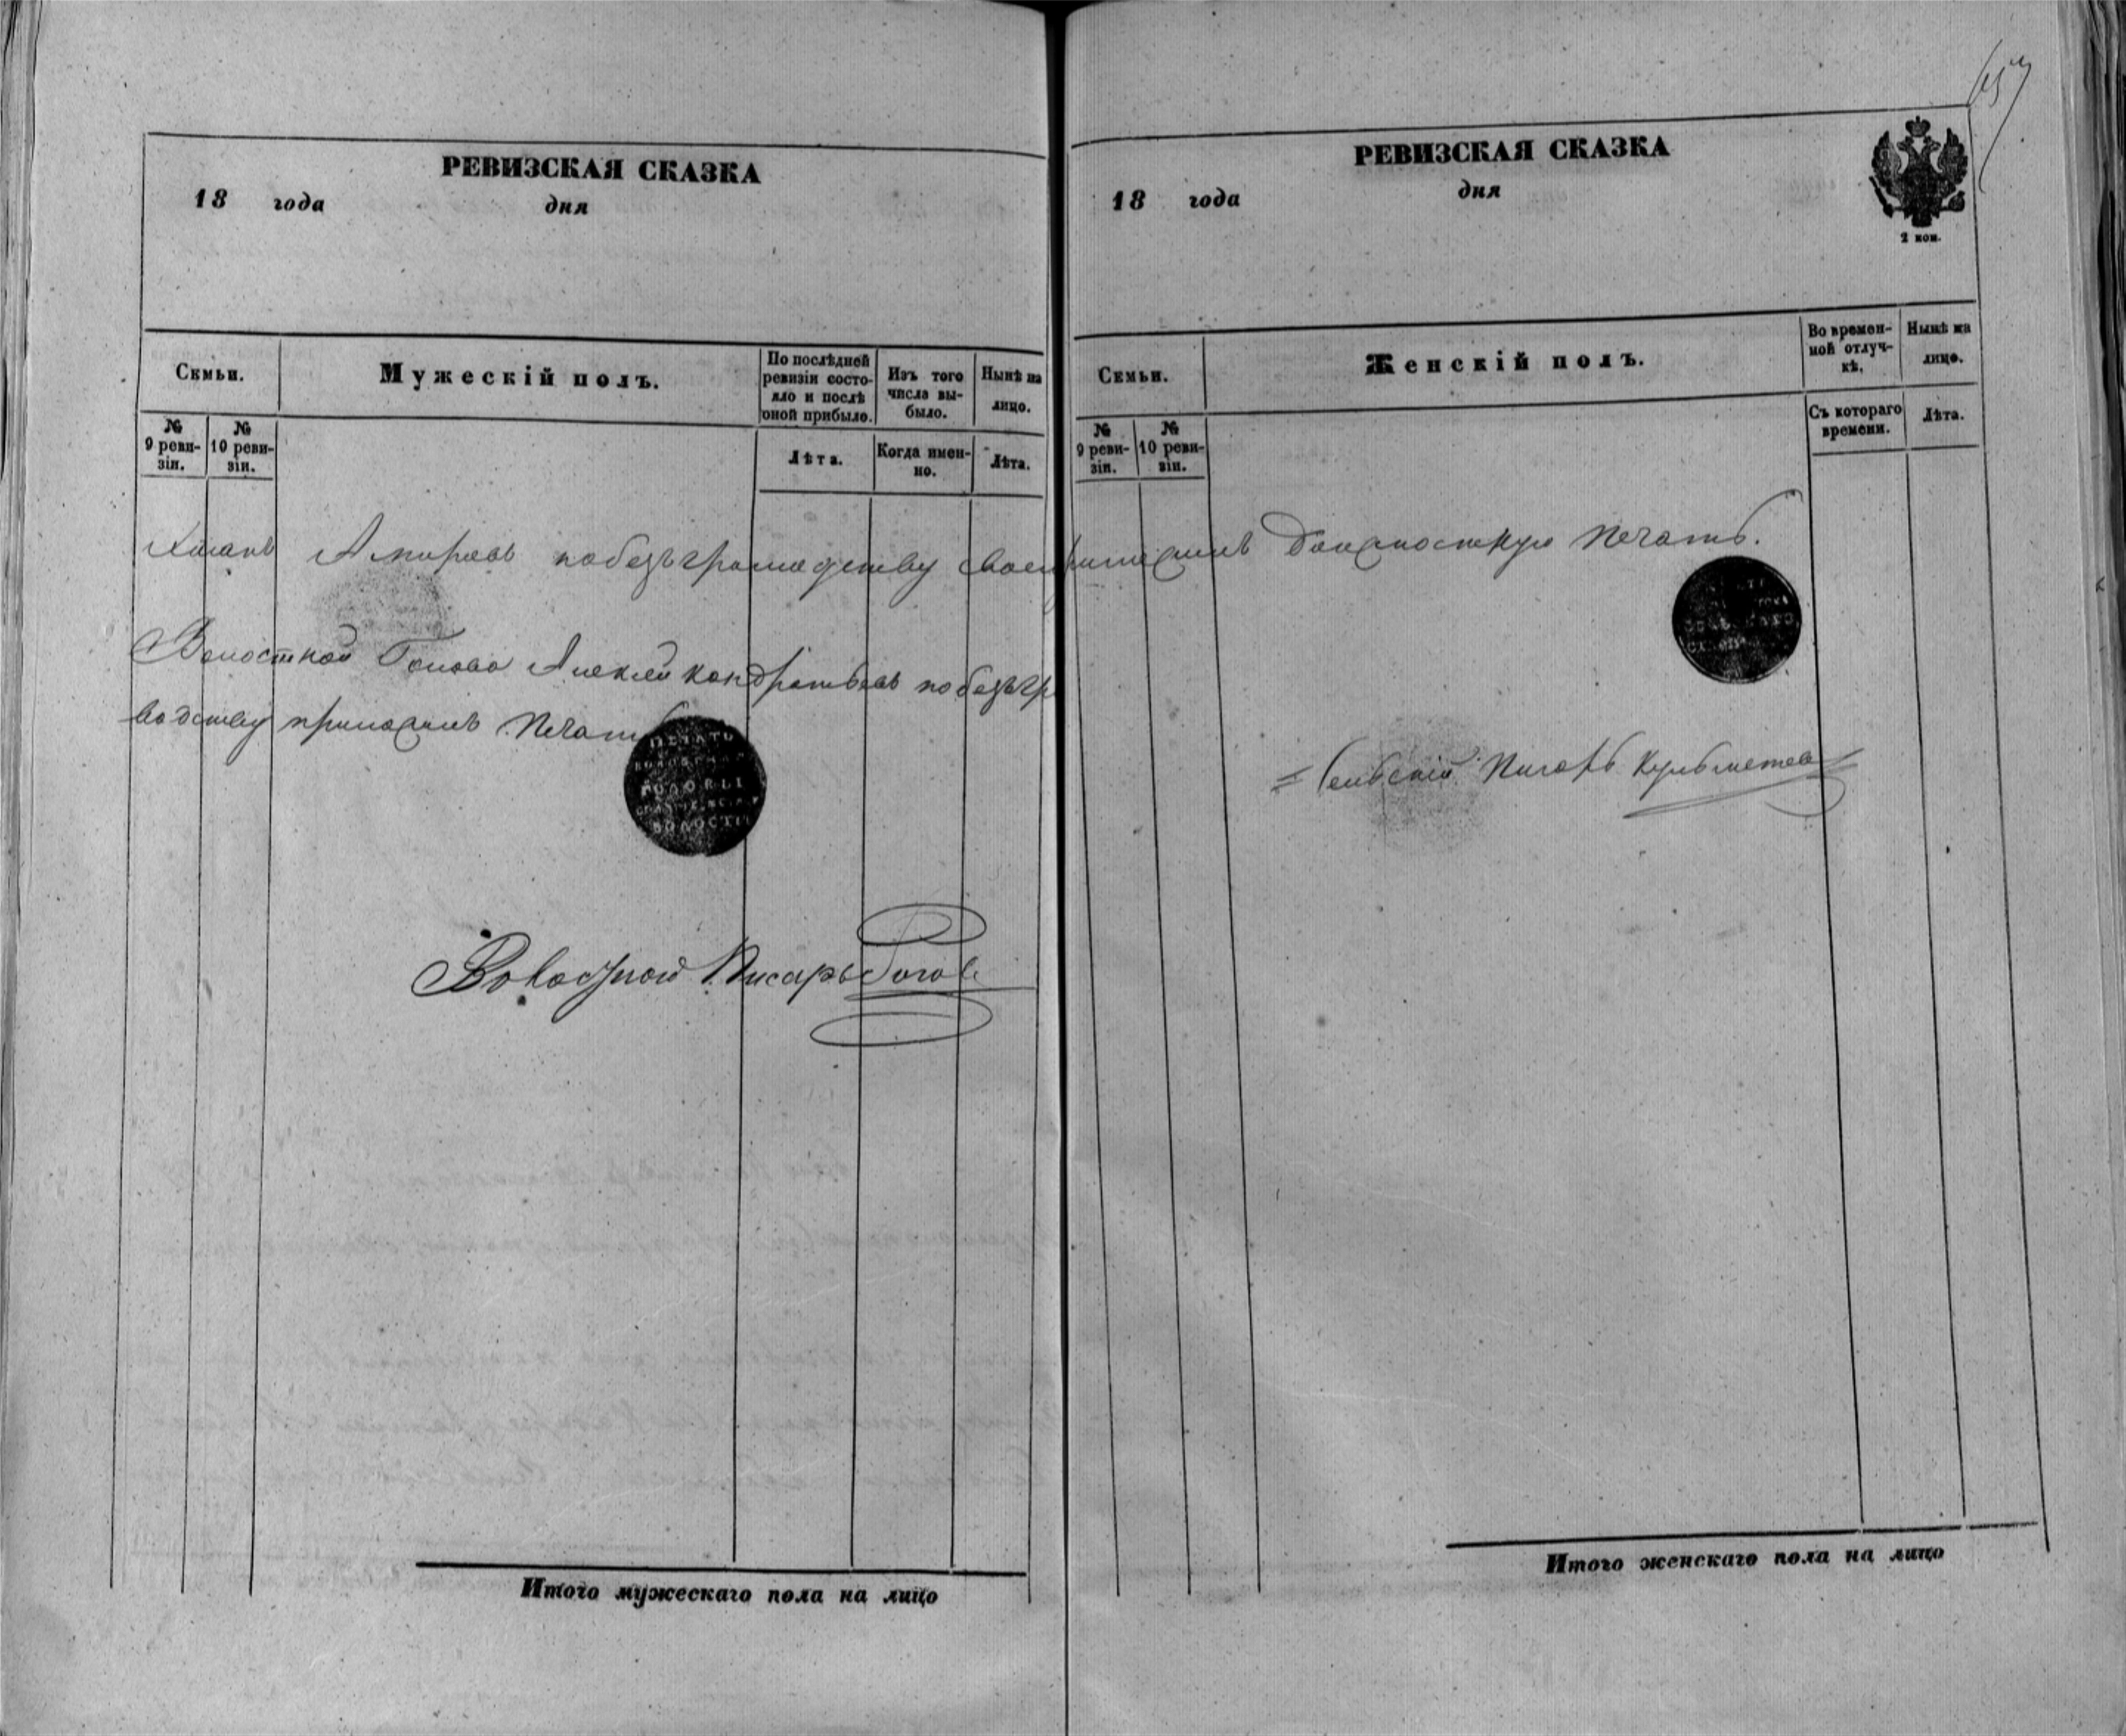 РЕВИЗСКАЯ СКАЗКА
18 года дня
Семьи.
Мужескій полъ.
По послѣдней ревизіи состояло и послѣ оной прибыло.
Изъ того числа выбыло.
Нынѣ на лицо.
№ 9 ревизіи.
№ 10 ревизіи.
Лѣта.
Когда именно.
Лѣта.
Амировъ побезъграмодству своему
Волостной Голова Алексей Кондратьевъ по безъгр
водству приложилъ печать
ПЕЧАТЬ
ГОЛОВЫ
ВОЛОСТИ
Волостной Писарь
Итого мужескаго пола на лицо
657
РЕВИЗСКАЯ СКАЗКА
18 года дня
2 коп.
Семьи.
Женскій полъ.
Во временной отлучкѣ.
Нынѣ на лицо.
№ 9 ревизіи.
№ 10 ревизіи.
Съ котораго времени.
Лѣта.
должностную печать.
Сельскій Писарь Кульметев
Итого женскаго пола на лицо